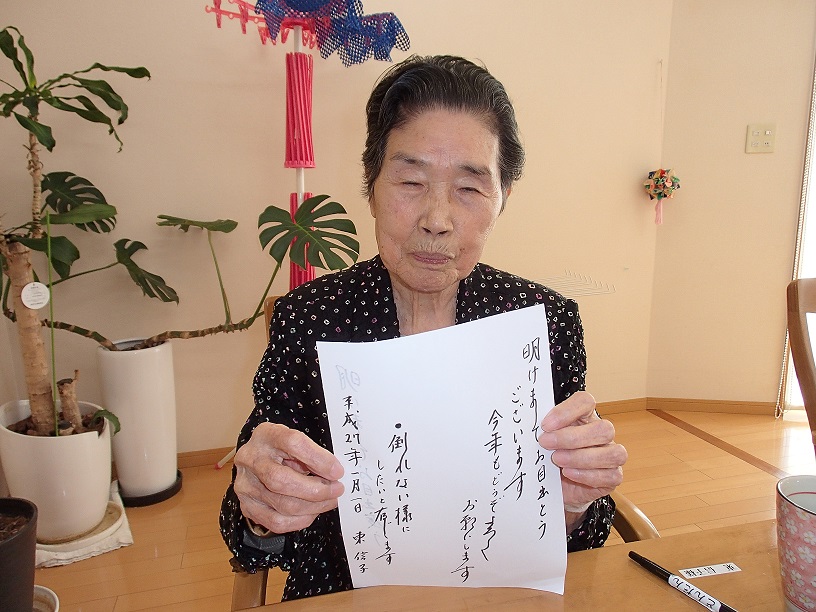 明けましてお目出とう
ございます
今年もどうぞよろしく
お願いします
・倒れない様に
したいと存じます
平成27年一月一日 東 信子